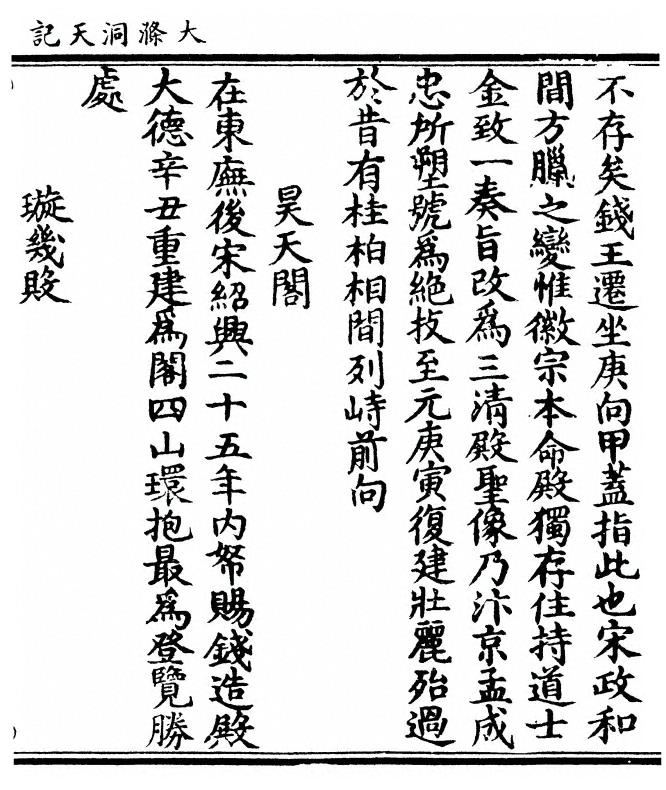 大滌洞天記
不存矣錢王遷坐庚向甲蓋指此也宋政和
間方臘之變惟徽宗本命殿獨存住持道士
金致一奏旨改為三清殿聖像乃汴京孟成
忠所塑號為絶技至元庚寅復建壯麗殆過
於昔有桂柏相間列峙前向
昊天閣
在東廡後宋紹興二十五年內帑賜錢造殿
大德辛丑重建為閣四山環抱最為登覽勝
處
璇幾殿